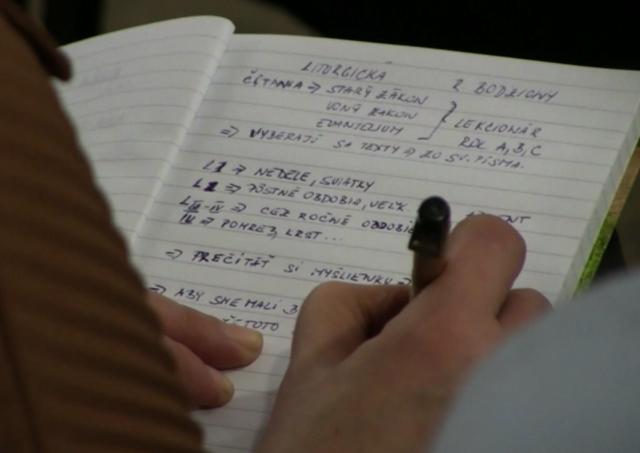 LITURGICKÁ
ČÍTANIA ⇒ STARÝ ZÁKON
ZÁKON
EVANJELIUM
LEKCIONÁR
ROK A, B, C
⇒ VYBERAJÚ SA TEXTY ⇒ ZO SV. PÍSMA.
⇒ NEDELE, SVIATKY
⇒ PÔSTNÉ OBDOBIA, VEĽK.
III-IV ⇒ CEZ ROČNÉ OBDOBIE
IV ⇒ POHREB, KRST...
⇒ PREČÍTAŤ SI MYŠLIENKU ⇒
⇒ ABY SME MALI